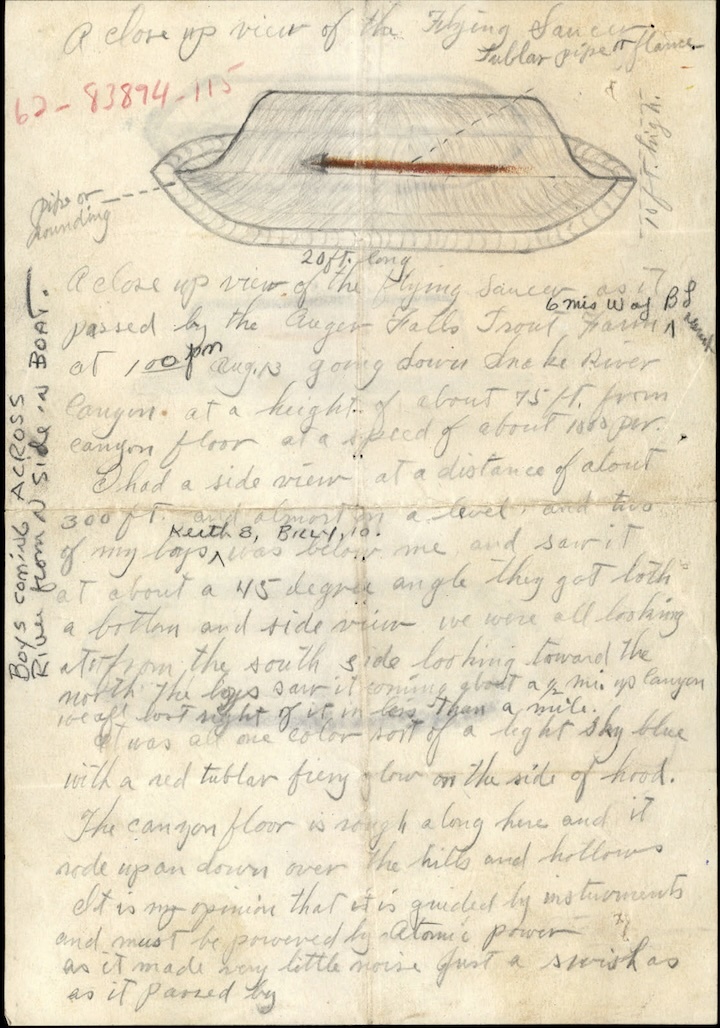 A close up view of the Flying Saucer
Tublar pipe or flance
62-83894-115
10 ft. high.
pipe or
rounding
20 ft. long
A close up view of the Flying Saucer as it
6 mis Way BL
passed by the Auger Falls Trout Farm
at 1 00 pm Aug, 13 going down Snake River
Canyon. at a height of about 75 ft. from
canyon floor at a speed of about 1000 per.
I had a side view at a distance of about
300 ft. and almost on a level, and two
Keith 8, Billy, 10.
of my boys was below me and saw it
at about a 45 degree angle they got both
a bottom and side view we were all looking
at it from the south side looking toward the
north The boys saw it coming about a ½ mi. up canyon
we all lost sight of it in less than a mile.
It was all one color sort of a light sky blue
with a red tublar fiery glow on the side of hood.
The canyon floor is rough along here and it
rode up an down over the hills and hollows
It is my opinion that it is guided by insturments
and must be powered by Atomic power
as it made very little noise Just a swish as
as it passed by
Boys coming ACROSS
River from N Side in BOAT.